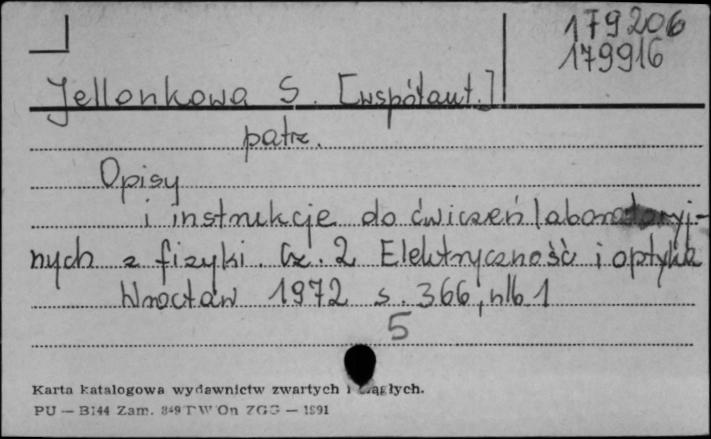 179206
179916
Jellonkowa S. [współaut.]
patrz.
Opisy
i instrukcje do ćwiczeń laboratoryj-
nych z fizyki. Cz. 2 Elektryczność i optyka
Wrocław 1972 s. 366, nlb. 1
5
Karta katalogowa wydawnictw zwartych i ciągłych.
PU — B144 Zam. 349 TW On ZGG — 1991